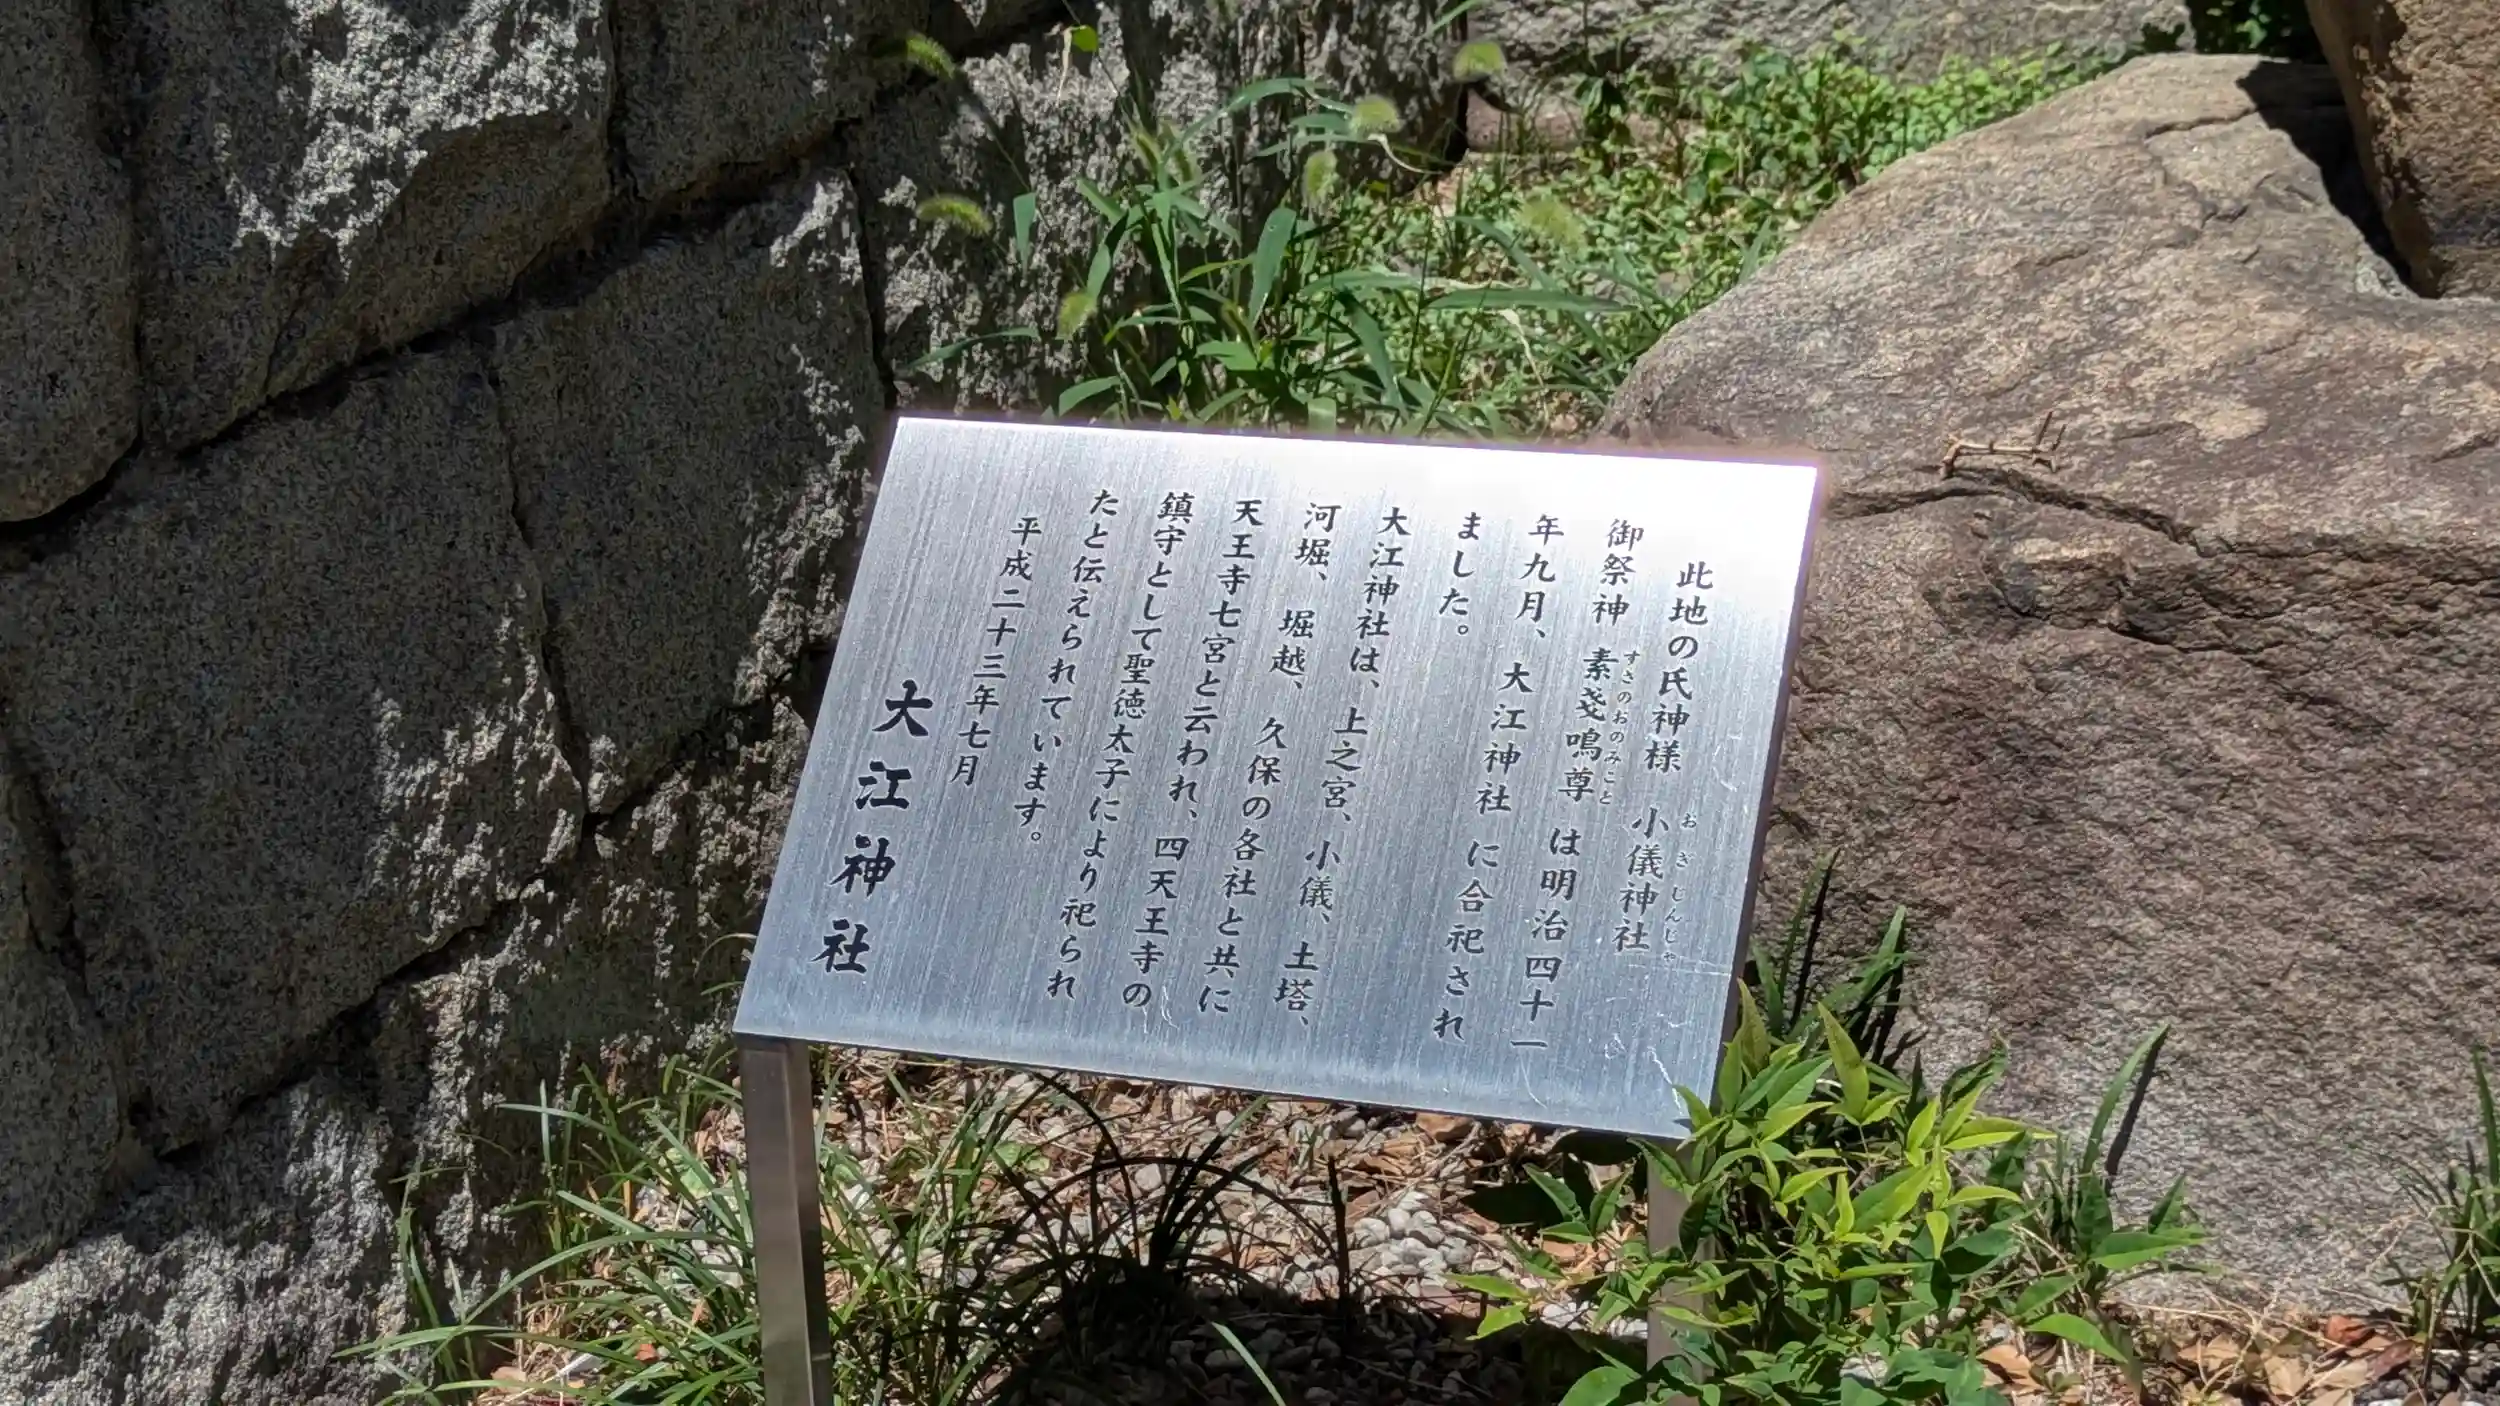 此地の氏神様 小儀神社
おぎじんじゃ
御祭神 素戔鳴尊 は明治四十一
すさのおのみこと
年九月、大江神社 に合祀され
ました。
大江神社は、上之宮、小儀、土塔、
河堀、堀越、久保の各社と共に
天王寺七宮と云われ、四天王寺の
鎮守として聖徳太子により祀られ
たと伝えられています。
平成二十三年七月
大江神社